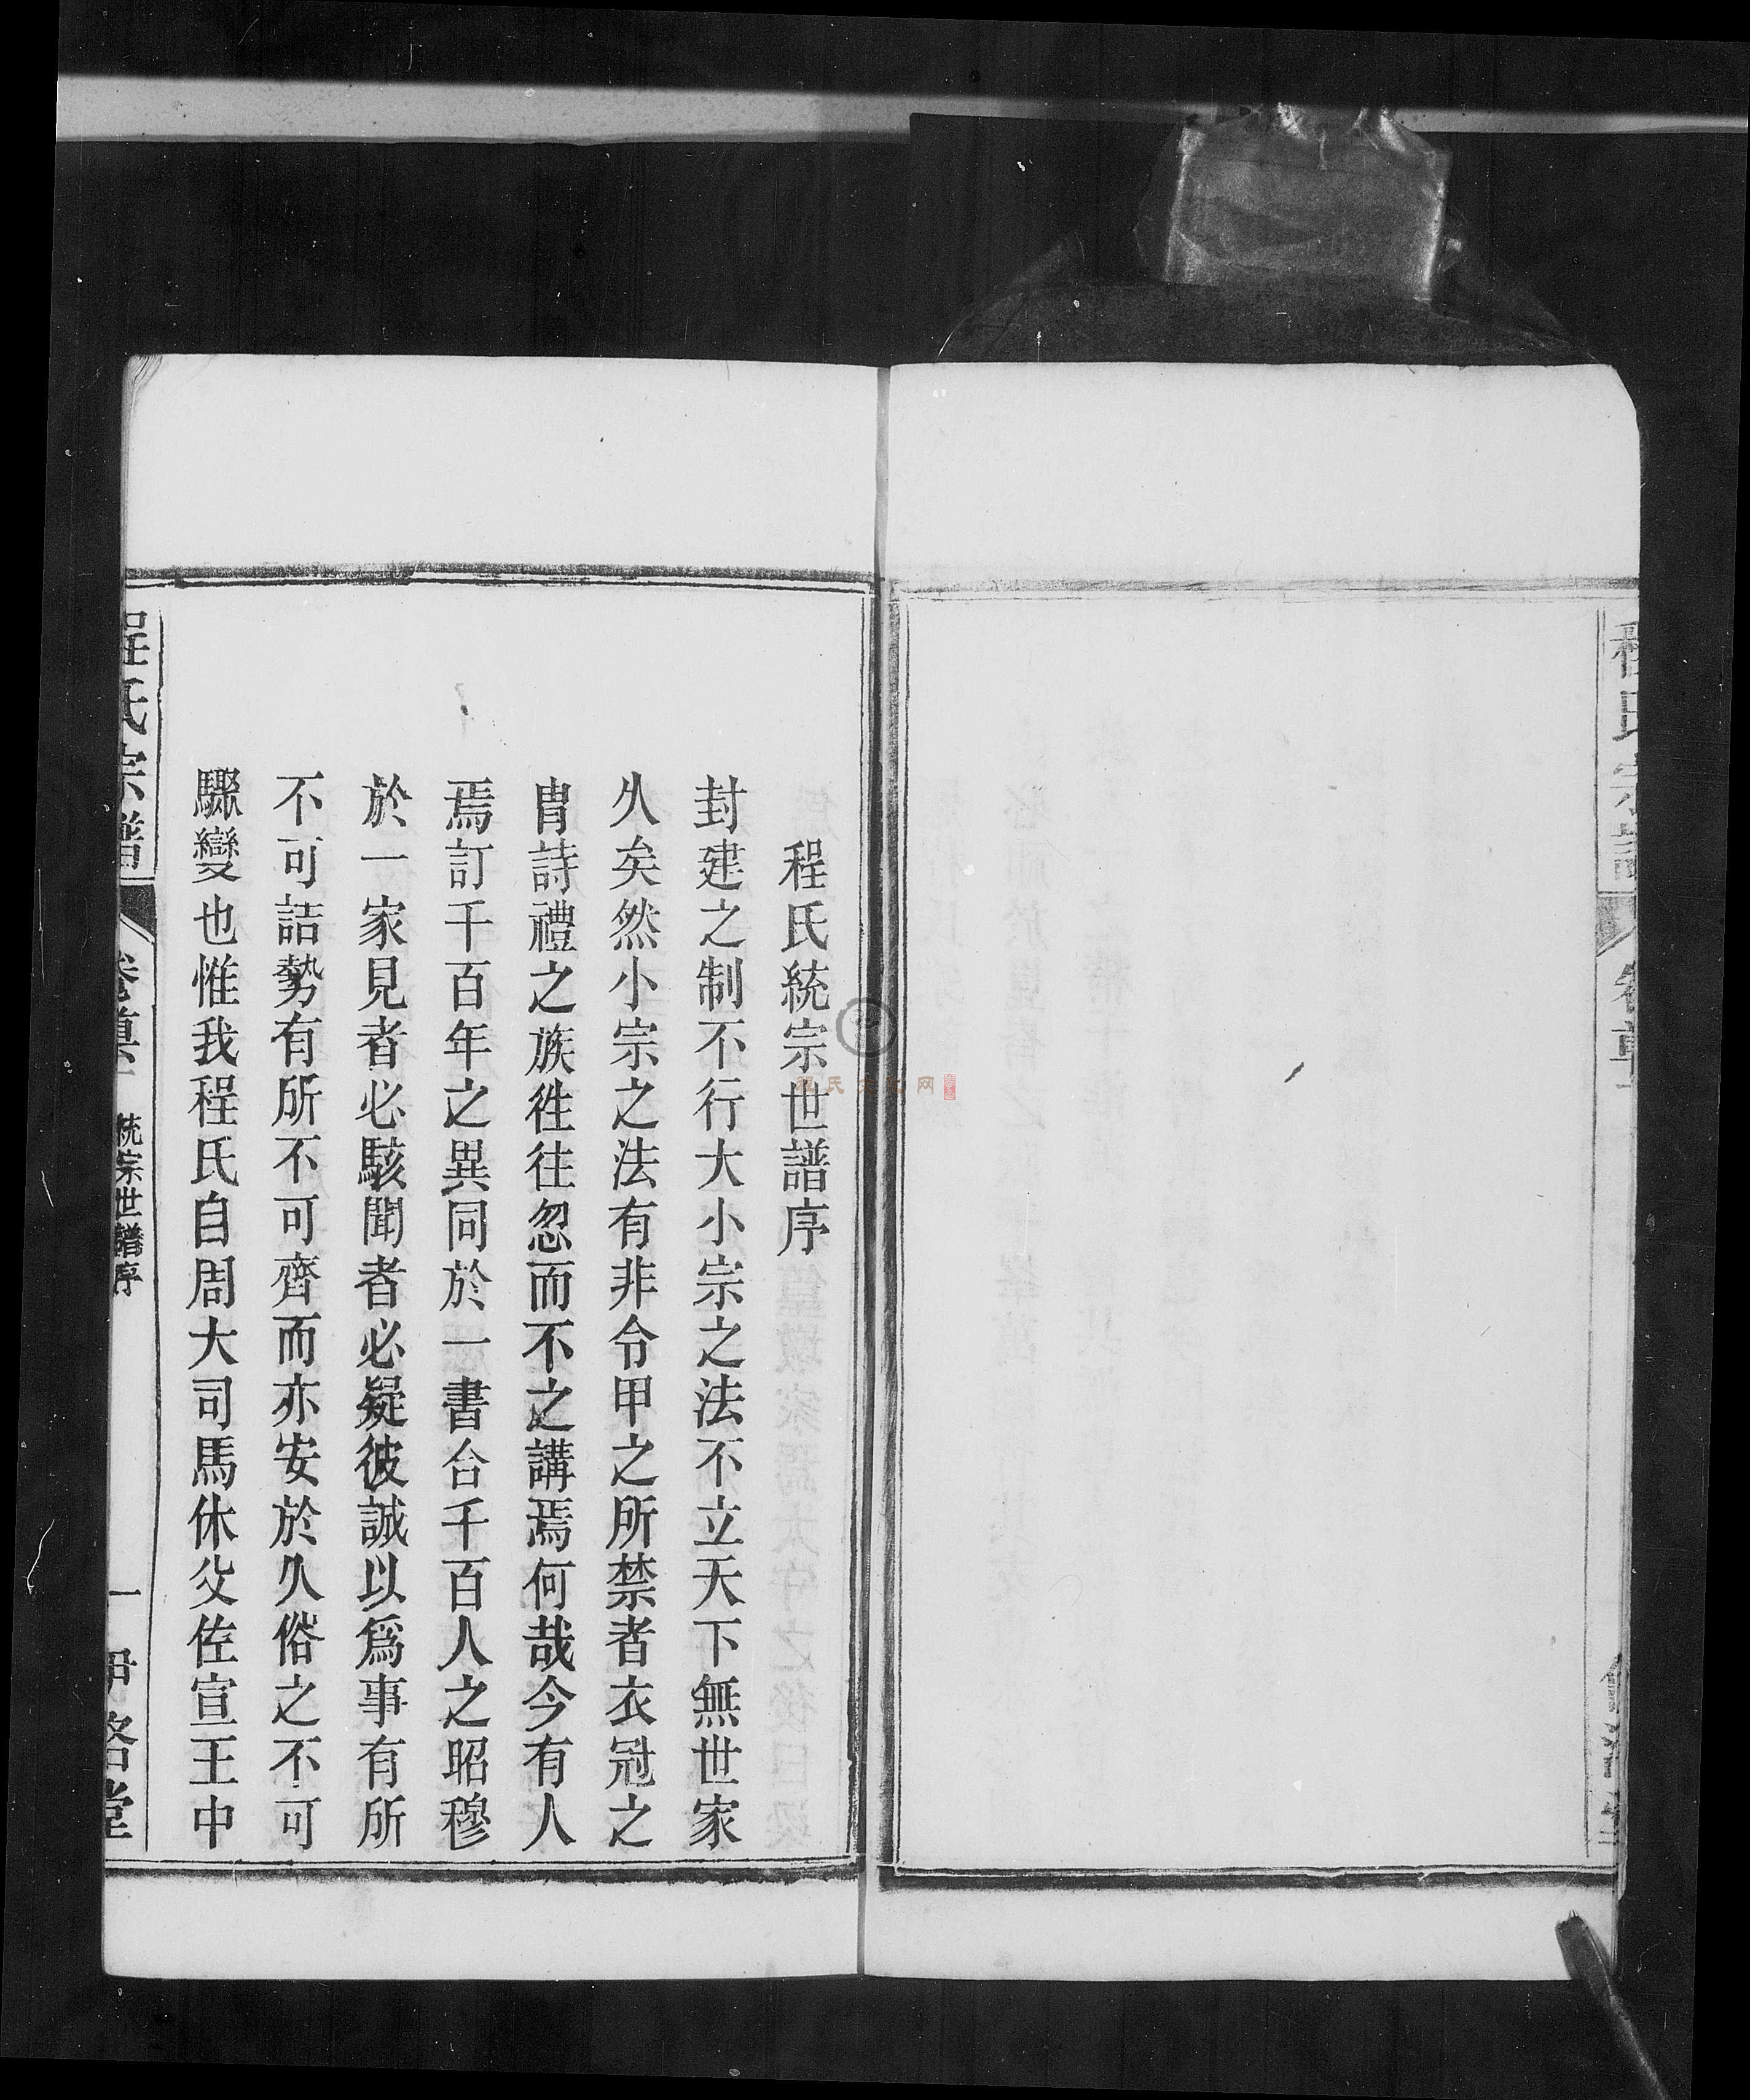 程氏統宗世譜序
封建之制不行大小宗之法不立天下無世家
久矣然小宗之法有非令甲之所禁者衣冠之
胄詩禮之族徃往忽而不之講焉何哉今有人
焉訂千百年之異同於一書合千百人之昭穆
於一家見者必駭聞者必疑彼誠以爲事有所
不可詰勢有所不可齊而亦安於久俗之不可
驟變也惟我程氏自周大司馬休父佐宣王中
程氏宗譜
卷首
統宗世譜序
一
伊洛堂